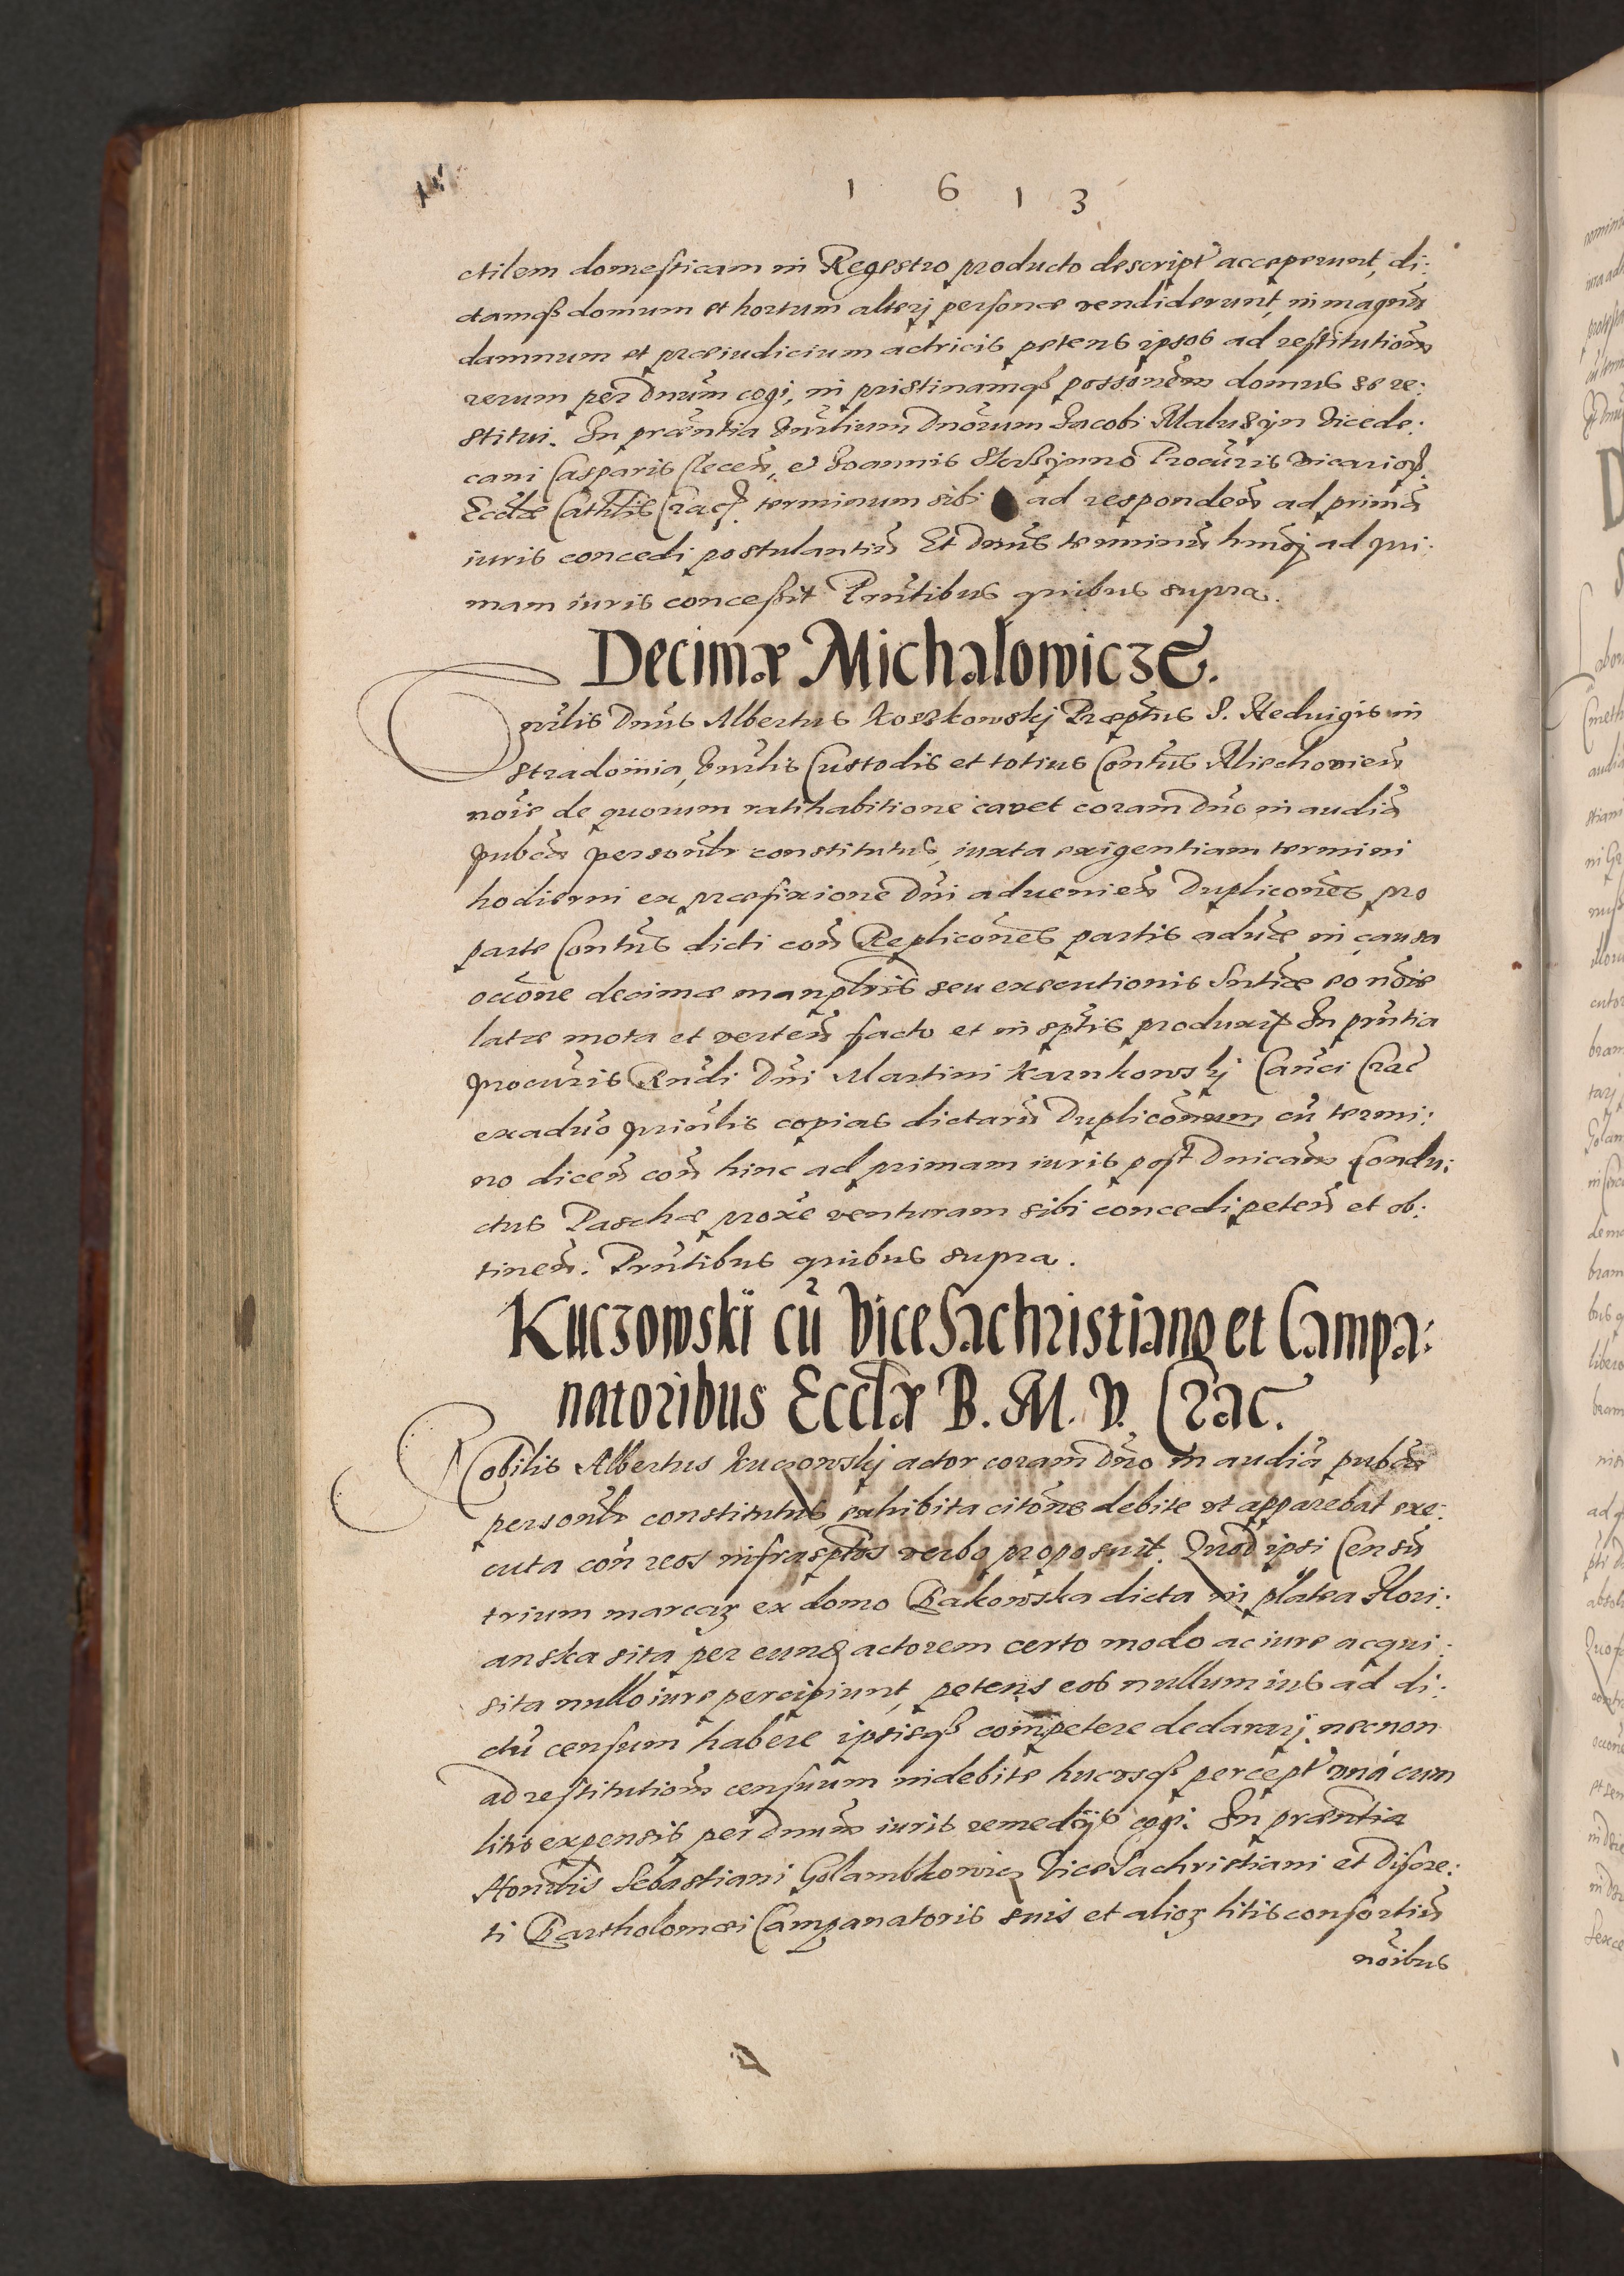 1 6 1 3
ctilem domesticam in Regestro producto descript acceperunt, di:
ctamqß domum et hortum alterj personæ vendiderunt, in magnũ
damnum et præiudicium actricis petens ipsos ad restitutionẽ
rerum per Dnum cogi, in pristinamqß possonẽm domus se re:
stitui. In præntia Vnrlium Dnorum Jacobi Malusÿn Vicede:
cani Casparis Clecen, et Joannis Procuris vicarioꝝ
Ecclæ Cathlis Crac. terminum sibi ad respondeñ ad primã
iuris concedi postulantiũ Et Dnus terminũ hmõj ad pri:
mam iuris conceßit Prntibus quibus supra.
Decimæ Michalowicze.
Vnrlis Dnus Albertus Koszkowskj Præptus S. Hedvigis in
Stradomia, Vnrlis Custodis et totius Contus Miechovien
noie de quorum ratihabitione cavet coram Dno in audiã
pubca personlr constitutus, iuxta exigentiam termini
hodierni ex præfixione Dni advenieñ Duplicones pro
parte Contus dicti con Replicones partis aduæ in causa
occone decimæ manplris seu executionis Sntiæ eo noie
latæ mota et verteñ facto et in sptis produxit In prntia
procuris Rndi Dni Martini Karnkowskj Canci Crac
exaduo principlis copias dictarũ Duplicõnum cũ termi:
no diceñ con hinc ad primam iuris post Dnicam Condu:
ctus Paschæ proxe venturam sibi concedi peteñ et ob:
tineñ. Prntibus quibus supra.
Kuczowski cũ ViceSachristiano et Campa:
natoribus Ecclæ B. M. V. Crac.
Nobilis Albertus Kuczowskj actor coram Dno in audiã pubca
personlr constitutus, exhibita citone debite vt apparebat exe:
cuta con reos infrasptos verbo proposuit. Quod ipsi Censũ
trium marcaꝝ ex domo Rakowska dicta in platea Flori:
anska sita per eund actorem certo modo ac iure acqui:
sita nullo iure percipiunt, petens eos nullum ius ad di:
ctũ censum habere ipsisqß competere declararj. necnon
ad restitutionẽ censuum indebite hucvsqß percept vnà cum
litis expensis per Dnum iuris remedijs cogi. In præntia
Honrlis Sebastiani Golambkowicz ViceSachristiani et Discre:
ti Bartholomæi Campanatoris suis et alioꝝ litisconsortiũ
noibus